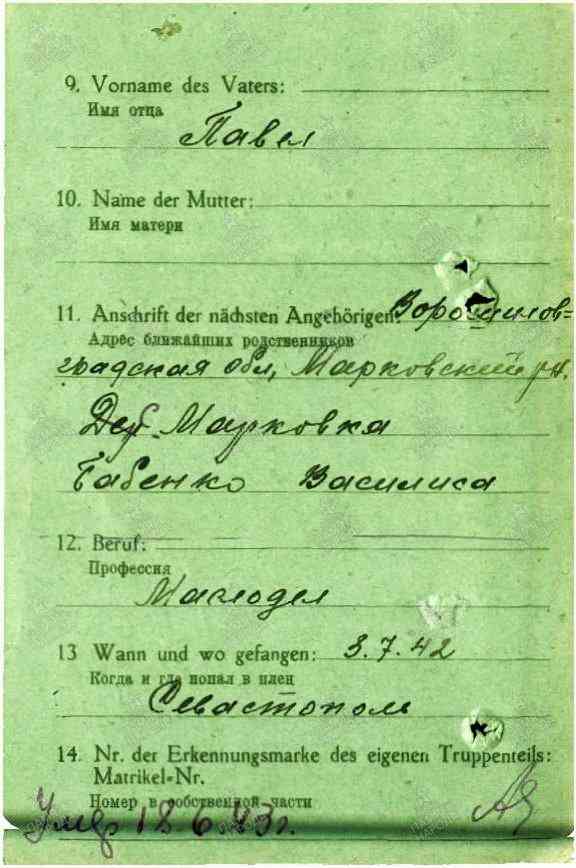 9. Vorname des Vaters:
Имя отца
Павел
10. Name der Mutter:
Имя матери
11. Anschrift der nächsten Angehörigen: Ворошилов=
Адрес ближайших родственников
градская обл, Марковский р-н.
Дер. Марковка
Бабенко Василиса
12. Beruf:
Профессия
Маслодел
13 Wann und wo gefangen: 3.7.42
Когда и где попал в плен
Севастополь
14. Nr. der Erkennungsmarke des eigenen Truppenteils:
Matrikel-Nr.
Номер в собственной части
Умер 18 6.43г.